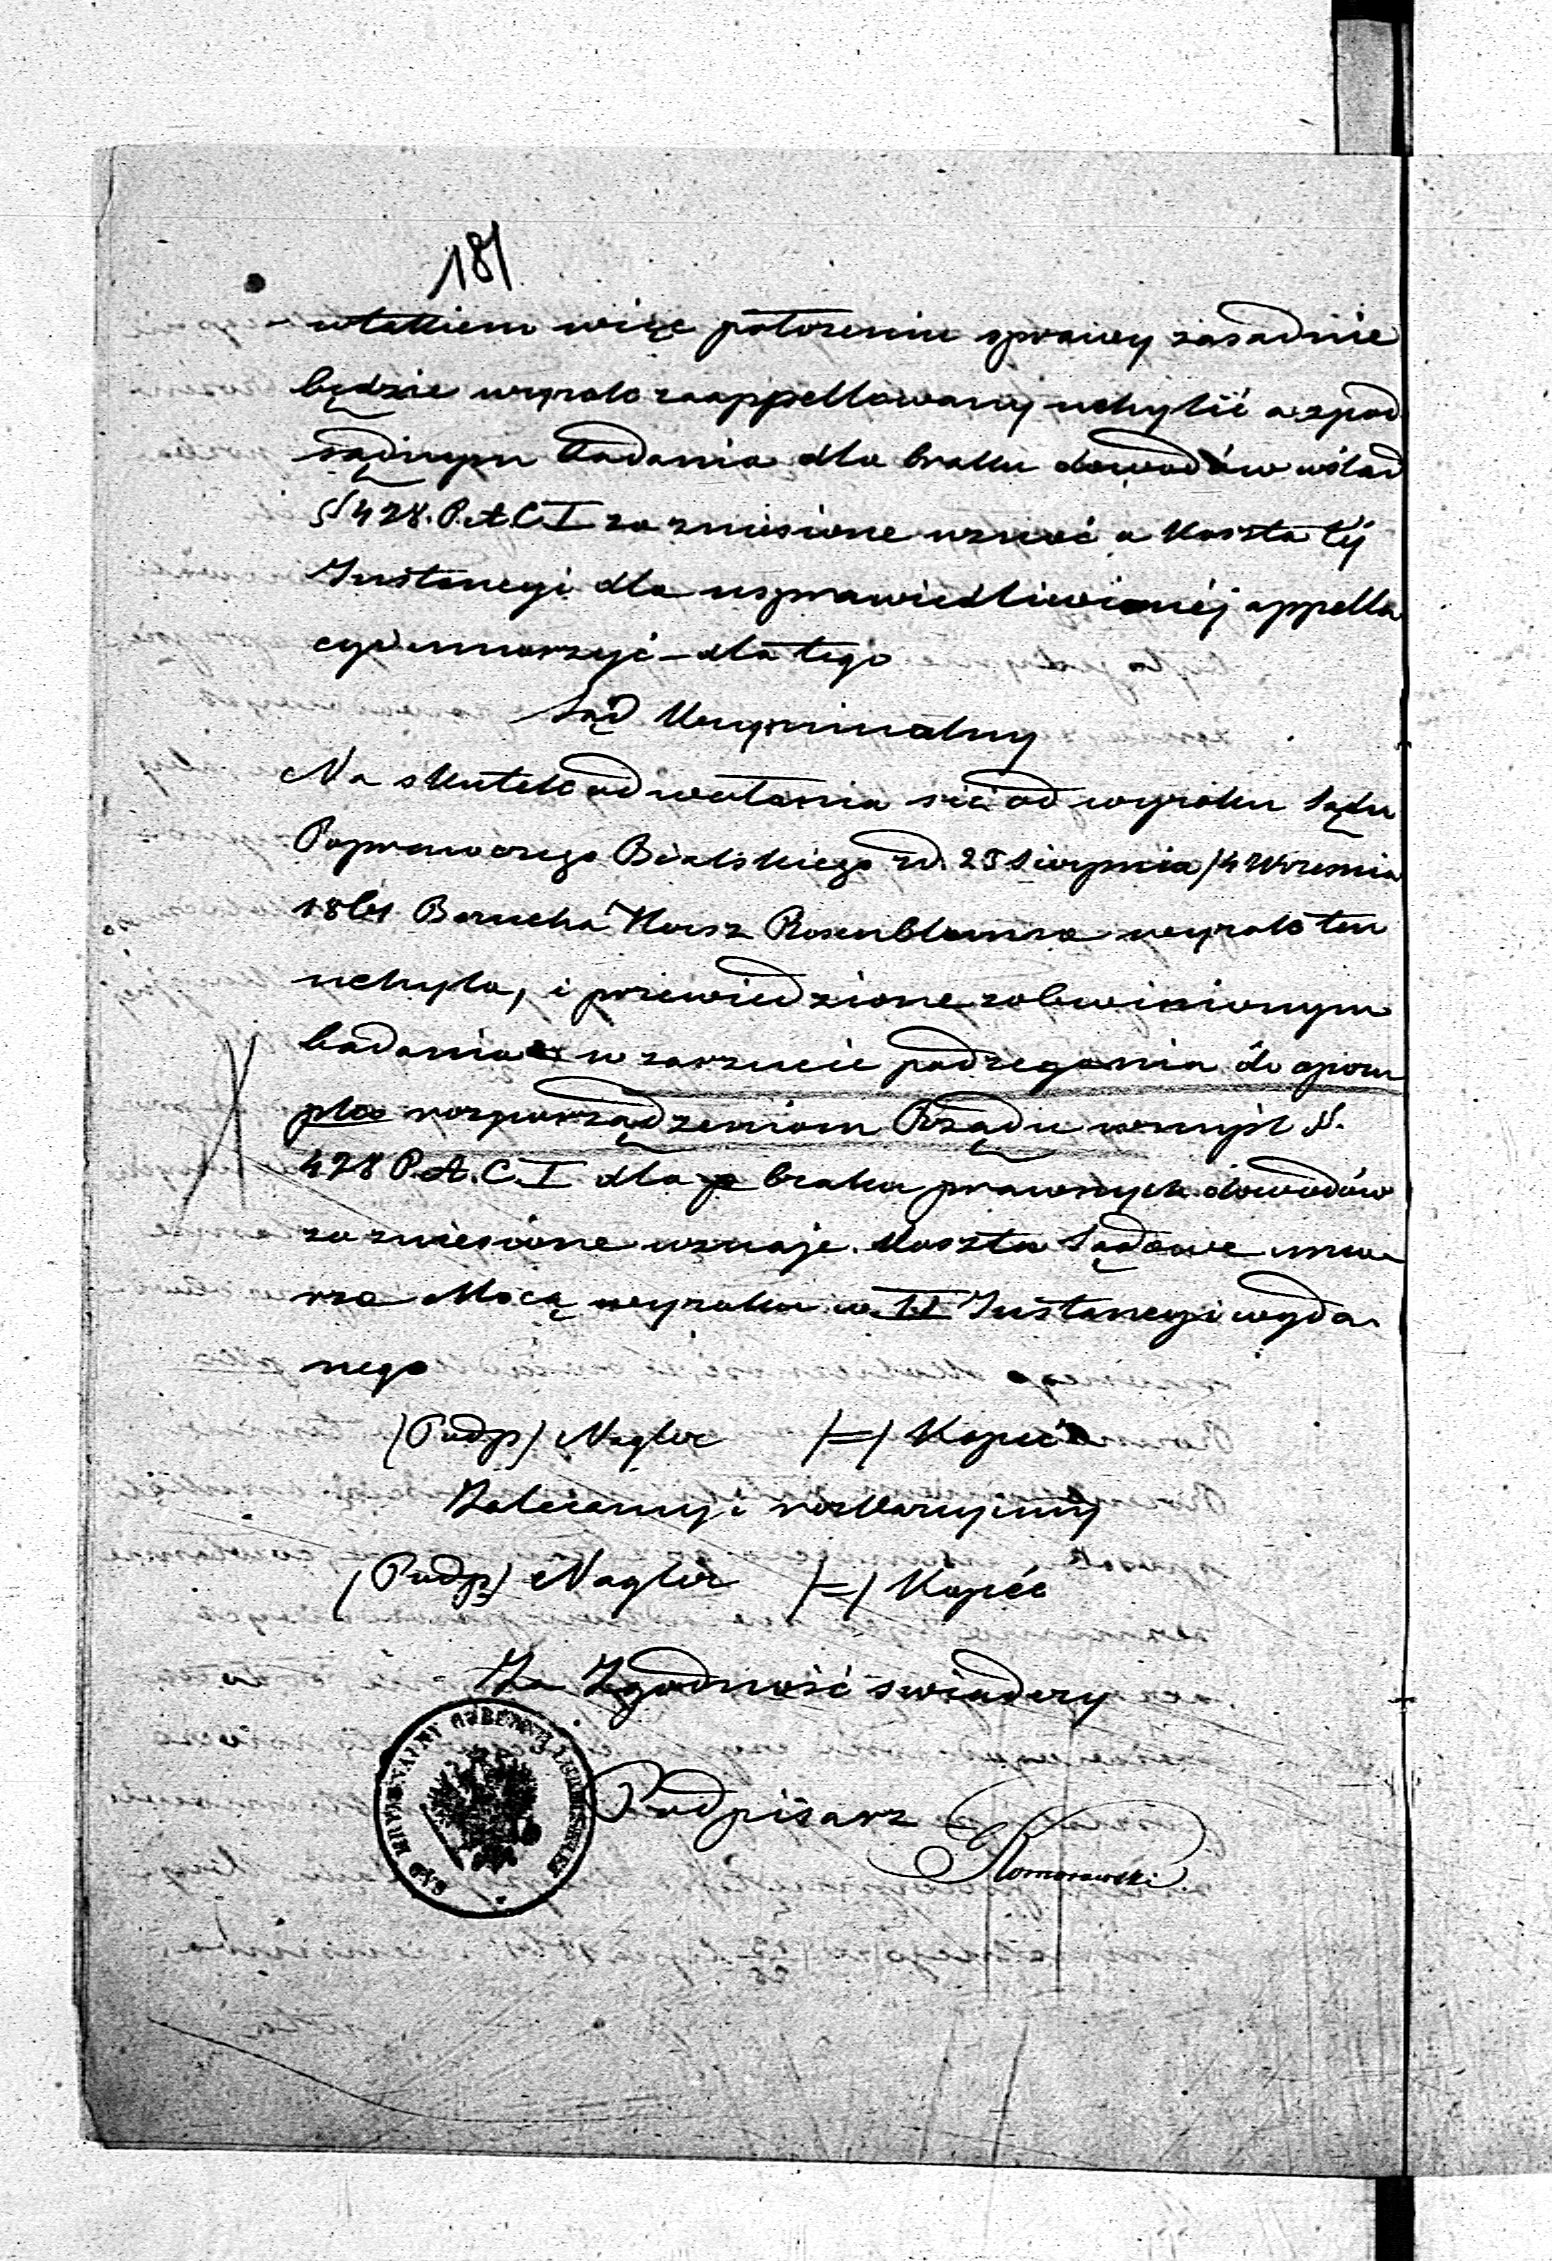 181
w takiem więc położeniu sprawy zasadnie
będzie wyrok zaappellowany uchylić a z pod
sądnym badania dla braku dowodów w ślad
§ 428. P.A.C.I za zniesione uznać a Koszta téj
Instancyi dla usprawiedliwionéj appella
cyi umorzyć – dla tego
Sąd Kryminalny
Na skutek odwołania się od wyroku Sądu
Poprawczego Bialskiego z d. 23 Sierpnia/4 Wrzesnia
1861 Berucha Hersz Rosenbluma wyrok ten
uchyla, i przewiedzione z obwinionym
badania w zarzucie podżegania do opiou
pla rozporządzeniom Rządu w myśl §.
428 P.A.C.I dla braku prawnych dowodów
za zniesione uznaje. Koszta Sądowe umo
rza Mocą wyroku w II Instancyi wyda
nego
(Podp) Nagler /=/ Kopeć
Zalecamy i rozkazujemy
(Podp) Nagler /=/ Kopeć
Za Zgodność swiadczy
SĄD KRYMINALNY GUBERNII LUBELSKIEJ
Podpisarz Komorowski